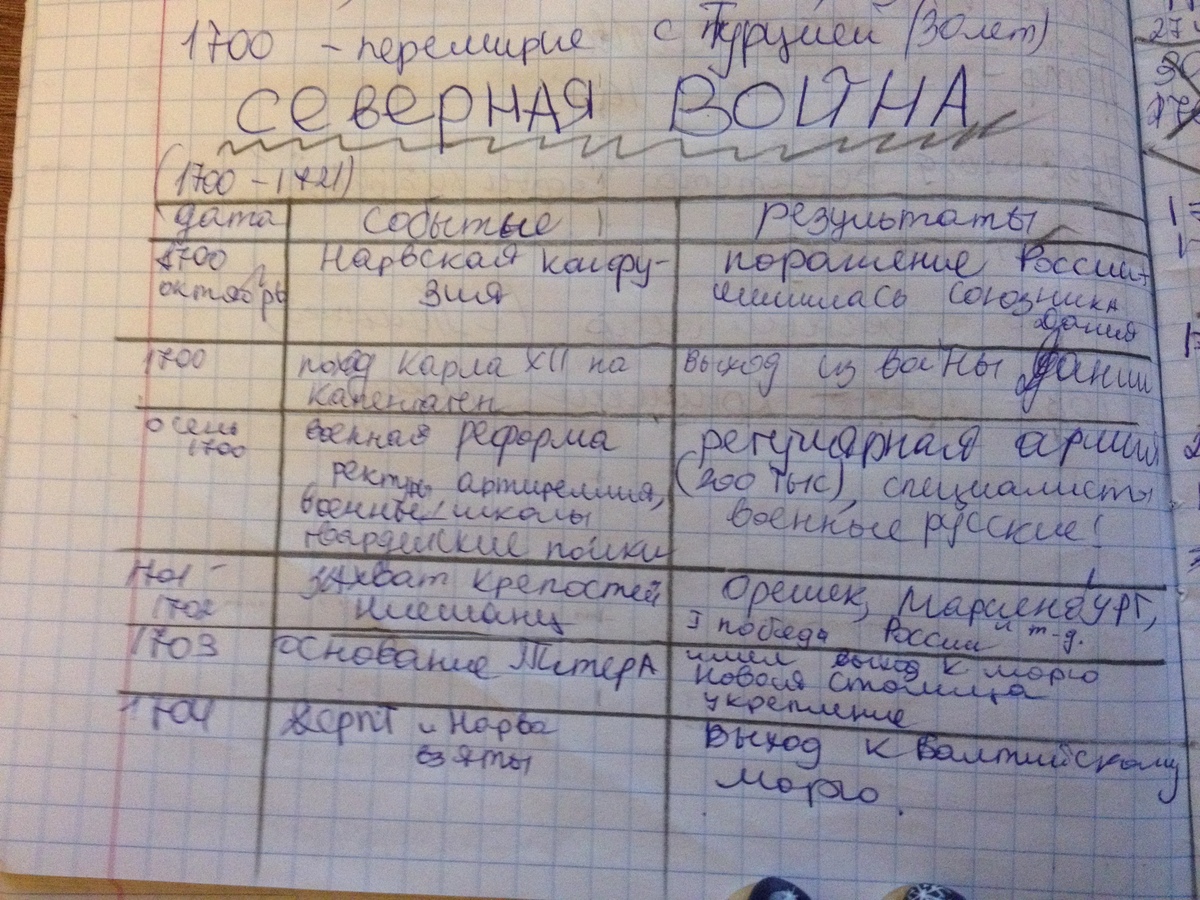 1700 - перемирие с Турцией (30 лет)
СЕВЕРНАЯ ВОЙНА
(1700 - 1721)
дата события результаты
1700 Нарвская конфу- поражение России,
октябрь зия лишилась союзника
Дания
1700 поход Карла XII на выход из войны Дании
Капенгаген
осень военная реформа регулярная армия
1700 рекруты, артиллерия, (200 тыс), специалисты
военные школы военные русские!
гвардейские полки
1701 - захват крепостей Орешек, Мариенбург,
1702 Ниешанц I победа России и т-д.
1703 основание Питера имел выход к морю
новая столица
укрепление
1704 Дерпт и Нарва Выход к Балтийскому
взяты морю.
27